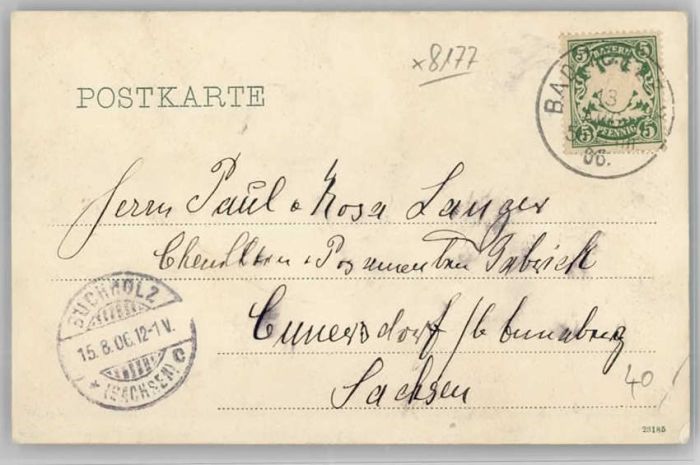 x 8177
POSTKARTE
5 BAYERN 5
5 PFENNIG 5
BAD
13
06.
Herrn Paul & Rosa Langer
Chenillen & Posamenten Fabrick
Cunersdorf b/ Annaberg
Sachsen
BUCHHOLZ
15.8.06.12-1V.
* (SACHSEN) c
40
23185